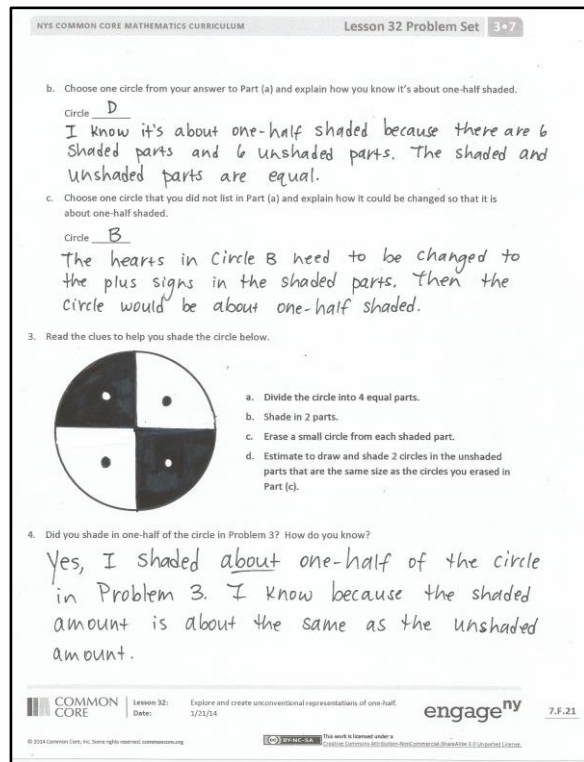 NYS COMMON CORE MATHEMATICS CURRICULUM
Lesson 32 Problem Set 3•7
b. Choose one circle from your answer to Part (a) and explain how you know it's about one-half shaded.
Circle D
I know it's about one-half shaded because there are 6
shaded parts and 6 unshaded parts. The shaded and
unshaded parts are equal.
c. Choose one circle that you did not list in Part (a) and explain how it could be changed so that it is
about one-half shaded.
Circle B
The hearts in Circle B need to be changed to
the plus signs in the shaded parts. Then the
circle would be about one-half shaded.
3. Read the clues to help you shade the circle below.
a. Divide the circle into 4 equal parts.
b. Shade in 2 parts.
c. Erase a small circle from each shaded part.
d. Estimate to draw and shade 2 circles in the unshaded
parts that are the same size as the circles you erased in
Part (c).
4. Did you shade in one-half of the circle in Problem 3? How do you know?
Yes, I shaded about one-half of the circle
in Problem 3. I know because the shaded
amount is about the same as the unshaded
amount.
COMMON
CORE
Lesson 32: Explore and create unconventional representations of one-half.
Date: 1/21/14
engageny
7.F.21
© 2014 Common Core, Inc. Some rights reserved. commoncore.org
(cc) BY-NC-SA
This work is licensed under a
Creative Commons Attribution-NonCommercial-ShareAlike 3.0 Unported License.